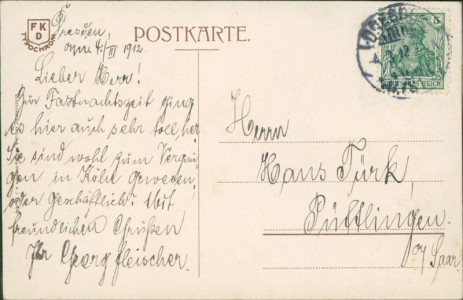 FKD
TYPOCHROM
POSTKARTE.
Dresden,
vom 4./III 1912.
Lieber Herr!
Zur Fastnachtszeit ging
es hier auch sehr toll her
Sie sind wohl zum Vergnü-
gen in Köln gewesen,
oder Geschäftlich. Mit
freundlichen Grüßen
Ihr Georg Fleischer.
5
Herrn
Hans Türk,
Püttlingen.
a/ Saar.